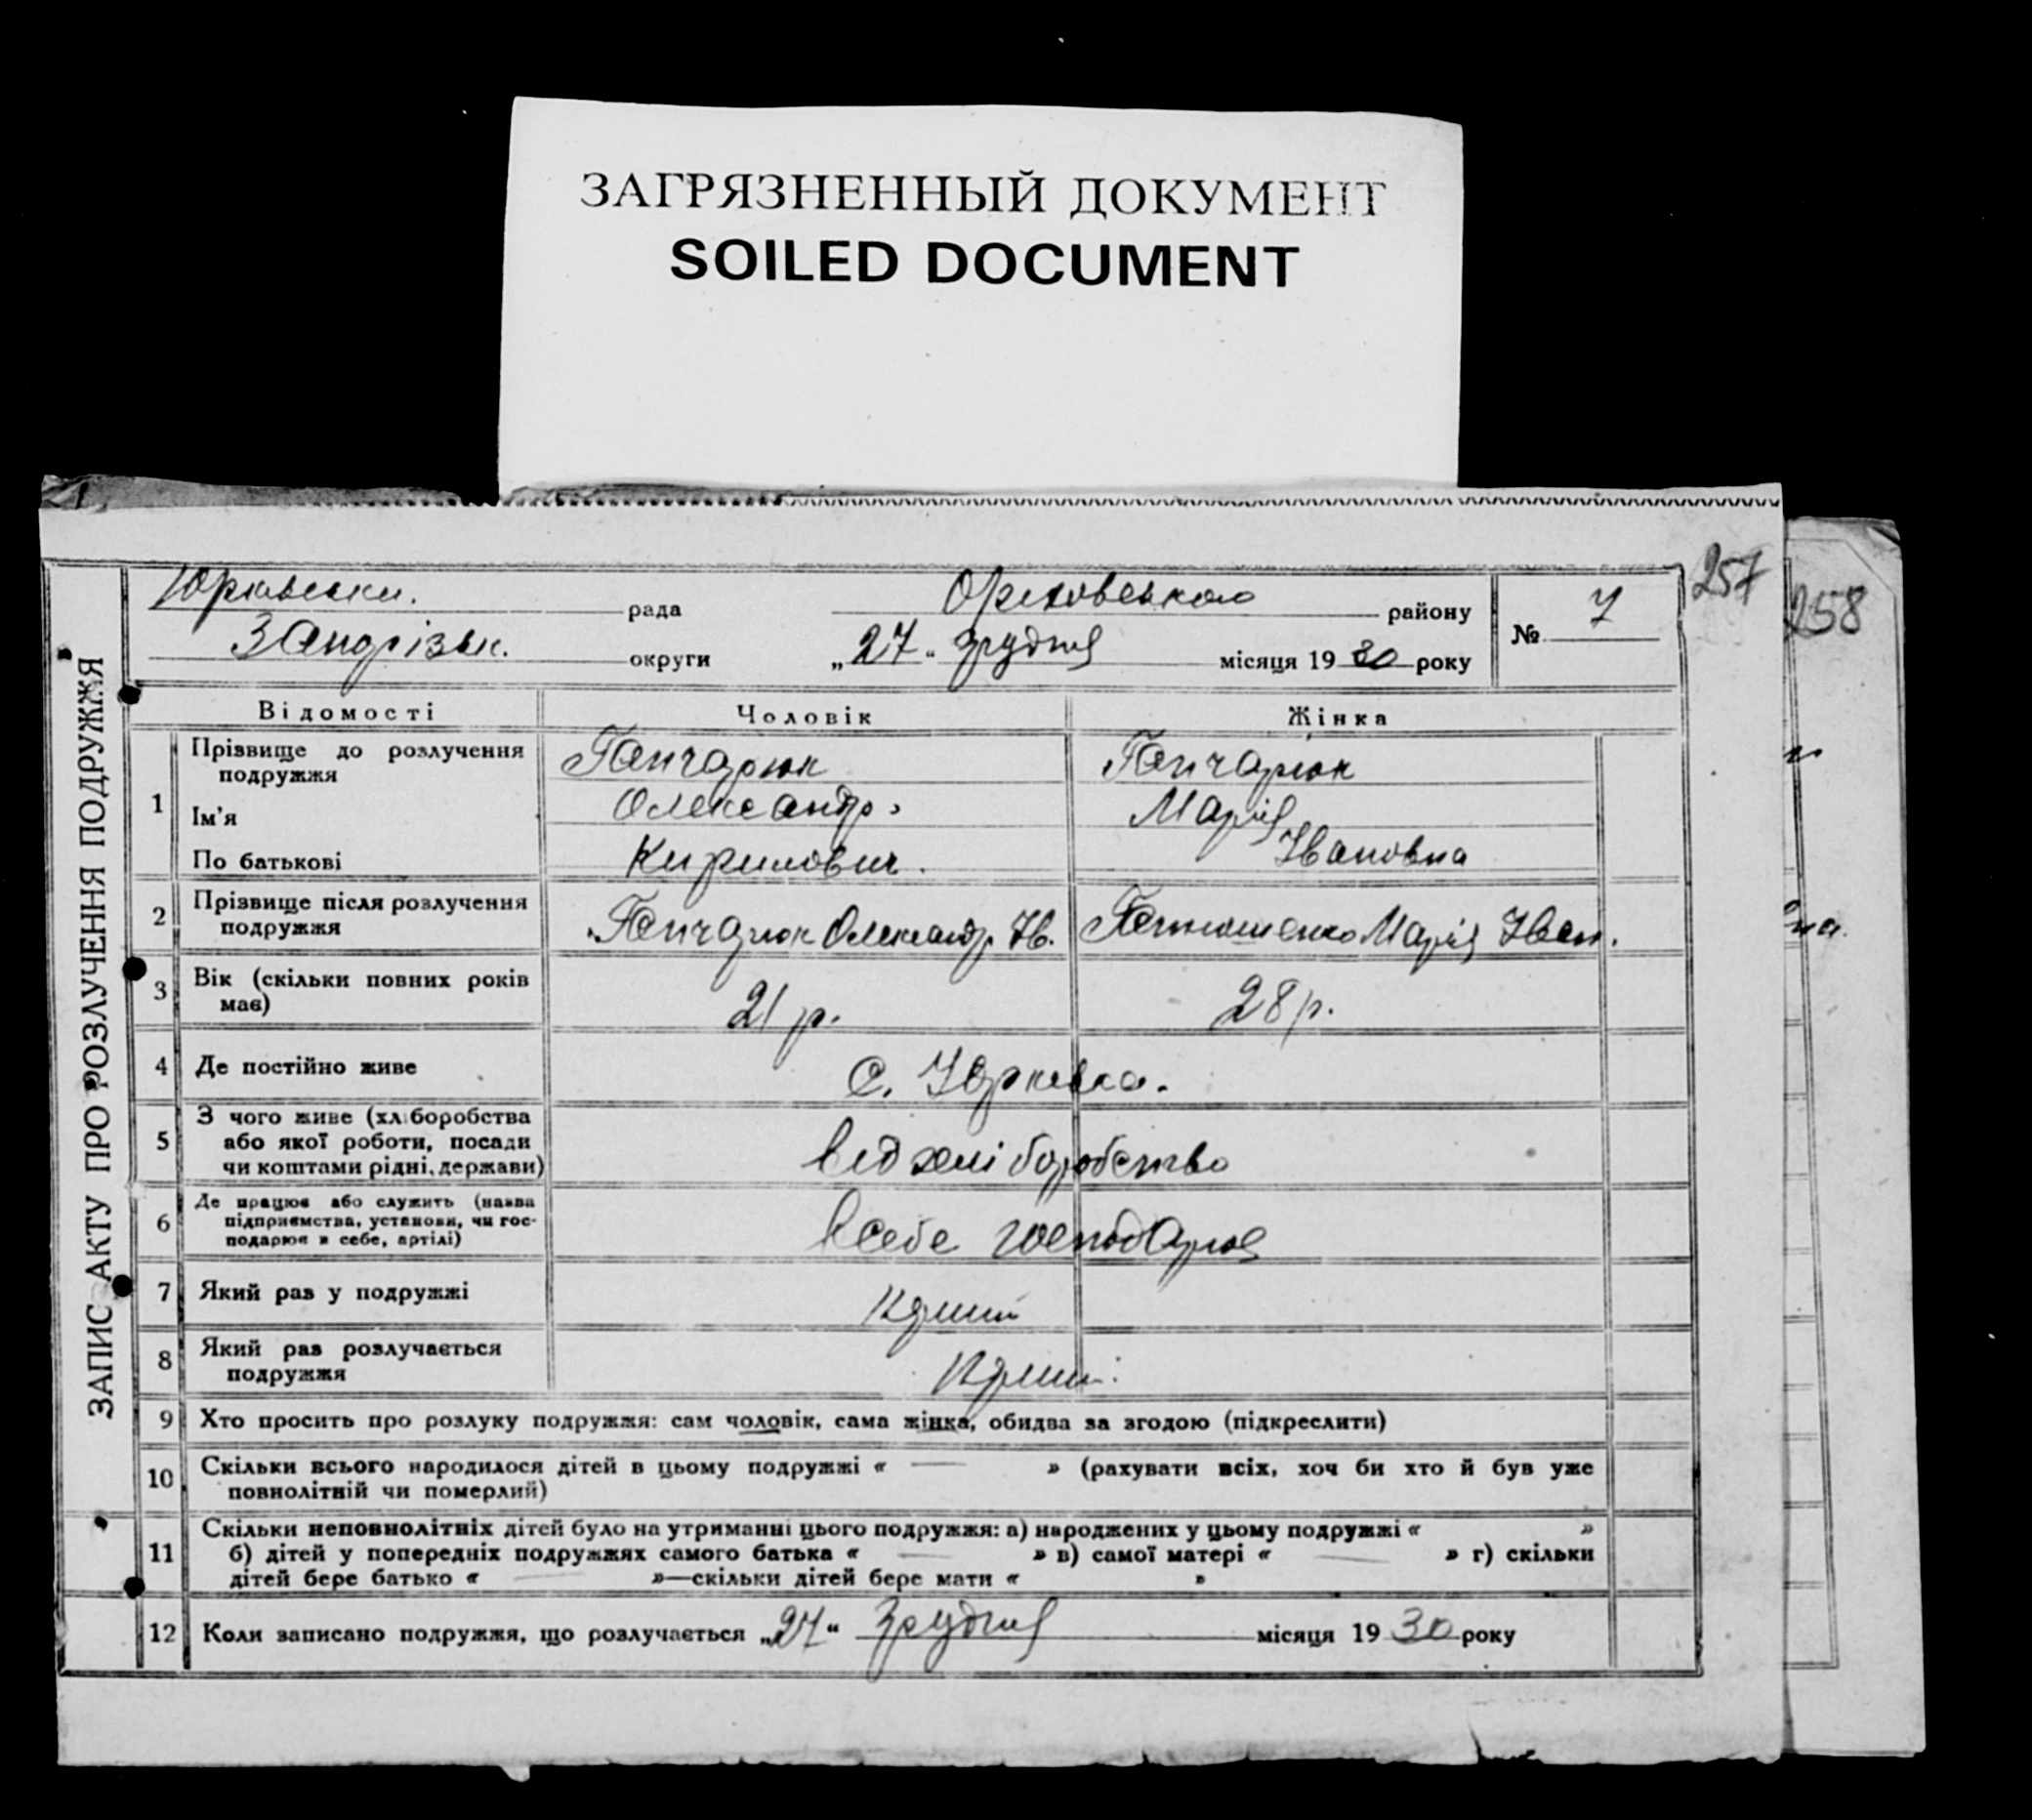 ЗАГРЯЗНЕННЫЙ ДОКУМЕНТ
SOILED DOCUMENT
257
258
ЗАПИС АКТУ ПРО РОЗЛУЧЕННЯ ПОДРУЖЖЯ
Юрківськ. рада Оріховського району № 7
Запорізьк. округи „27“ грудня місяця 19 30 року
Відомості Чоловік Жінка
1 Прізвище до розлучення подружжя Гончарюк Гончарюк
Ім'я Олександр Марія
По батькові Кирилович Івановна
2 Прізвище після розлучення
подружжя Гончарюк Олександр Ів. Марія Іван.
3 Вік (скільки повних років
має) 21 р. 28 р.
4 Де постійно живе с. Юрківка.
5 З чого живе (хліборобства
або якої роботи, посади
чи коштами рідні, держави) від хліборобства
6 Де працює або служить (назва
підприємства, установи, чи гос-
подарює в себе, артілі) в себе господарює
7 Який раз у подружжі
8 Який раз розлучається
подружжя
9 Хто просить про розлуку подружжя: сам чоловік, сама жінка, обидва за згодою (підкреслити)
10 Скільки всього народилося дітей в цьому подружжі « — » (рахувати всіх, хоч би хто й був уже
повнолітній чи померлий)
11 Скільки неповнолітніх дітей було на утриманні цього подружжя: а) народжених у цьому подружжі « »
б) дітей у попередніх подружжях самого батька « — » в) самої матері « — » г) скільки
дітей бере батько « — »—скільки дітей бере мати « »
12 Коли записано подружжя, що розлучається „27“ грудня місяця 19 30 року